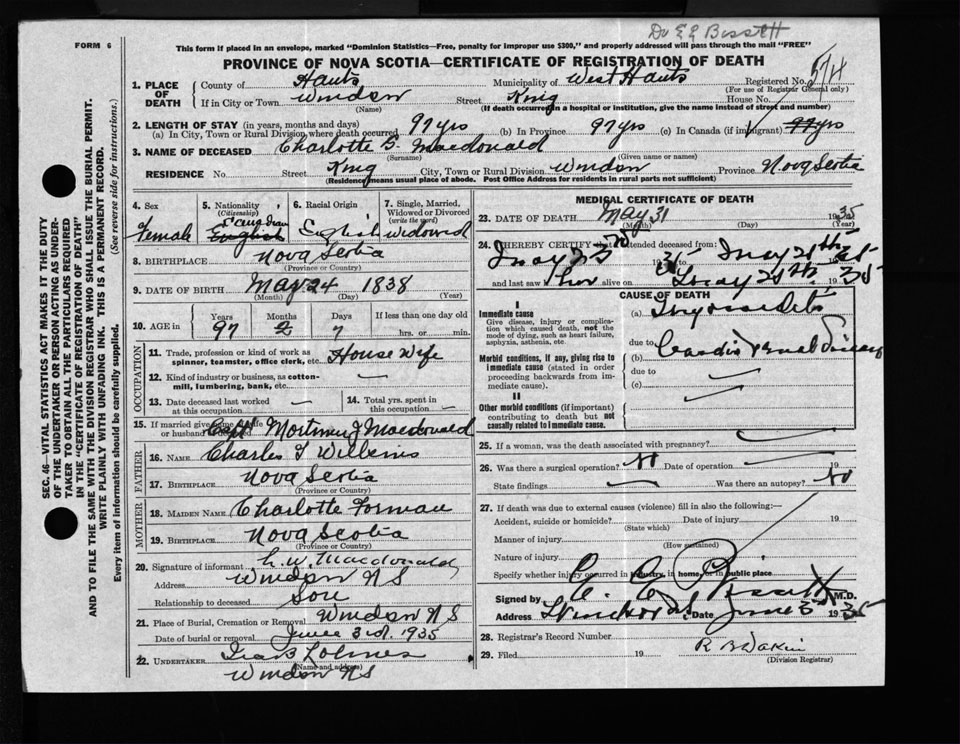 Dr E E Bissett
FORM 6
This form if placed in an envelope, marked "Dominion Statistics—Free, penalty for improper use $300," and properly addressed will pass through the mail "FREE"
PROVINCE OF NOVA SCOTIA—CERTIFICATE OF REGISTRATION OF DEATH
SEC. 46—VITAL STATISTICS ACT MAKES IT THE DUTY
OF THE UNDERTAKER OR PERSON ACTING AS UNDER-
TAKER TO OBTAIN ALL THE PARTICULARS REQUIRED
IN THE "CERTIFICATE OF REGISTRATION OF DEATH"
AND TO FILE THE SAME WITH THE DIVISION REGISTRAR WHO SHALL ISSUE THE BURIAL PERMIT.
WRITE PLAINLY WITH UNFADING INK. THIS IS A PERMANENT RECORD.
Every item of information should be carefully supplied. (See reverse side for instructions.)
1. PLACE OF DEATH County of Hants Municipality of West Hants Registered No.
(For use of Registrar General only)
If in City or Town Windsor Street King House No.
(Name) (If death occurred in a hospital or institution, give the name instead of street and number)
2. LENGTH OF STAY (in years, months and days)
(a) In City, Town or Rural Division, where death occurred 97 yrs (b) In Province 97 yrs (c) In Canada (if immigrant) 97 yrs
3. NAME OF DECEASED Charlotte S. Macdonald
(Surname) (Given name or names)
RESIDENCE No. Street King City, Town or Rural Division Windsor Province Nova Scotia
(Residence means usual place of abode. Post Office Address for residents in rural parts not sufficient)
4. Sex Female
5. Nationality (Citizenship) Canadian English
6. Racial Origin English
7. Single, Married, Widowed or Divorced (write the word) Widowed
8. BIRTHPLACE Nova Scotia
(Province or Country)
9. DATE OF BIRTH May 24 1838
(Month) (Day) (Year)
10. AGE in Years Months Days If less than one day old
97 7 hrs. or min.
OCCUPATION
11. Trade, profession or kind of work as spinner, teamster, office clerk, etc. House Wife
12. Kind of industry or business, as cotton-mill, lumbering, bank, etc. —
13. Date deceased last worked at this occupation —
14. Total yrs. spent in this occupation —
15. If married give name of wife or husband of deceased Capt Mortimer J Macdonald
FATHER
16. NAME Charles T Wilkins
17. BIRTHPLACE Nova Scotia
(Province or Country)
MOTHER
18. MAIDEN NAME Charlotte Forman
19. BIRTHPLACE Nova Scotia
(Province or Country)
20. Signature of informant C. W. Macdonald
Address Windsor N S
Relationship to deceased Son
21. Place of Burial, Cremation or Removal Windsor N S
Date of burial or removal June 3rd, 1935
22. UNDERTAKER
(Name and address)
Windsor N S
MEDICAL CERTIFICATE OF DEATH
23. DATE OF DEATH May 31 1935
(Month) (Day) (Year)
24. I HEREBY CERTIFY that I attended deceased from:
May 1935 to May
and last saw alive on May 1935
CAUSE OF DEATH
I
Immediate cause
Give disease, injury or complication which caused death, not the mode of dying, such as heart failure, asphyxia, asthenia, etc.
Morbid conditions, if any, giving rise to immediate cause (stated in order proceeding backwards from immediate cause).
II
Other morbid conditions (if important) contributing to death but not causally related to immediate cause.
(a) Myocarditis
due to
(b) Cardio Renal Disease
due to
(c)
25. If a woman, was the death associated with pregnancy?
26. Was there a surgical operation? No Date of operation 19
State findings Was there an autopsy? No
27. If death was due to external causes (violence) fill in also the following:—
Accident, suicide or homicide? Date of injury 19
(State which)
Manner of injury
(How sustained)
Nature of injury
Specify whether injury occurred in industry, in home, or in public place
Signed by E. E. Bissett M.D.
Address Windsor Date June 3 1935
28. Registrar's Record Number
29. Filed 19
(Division Registrar)